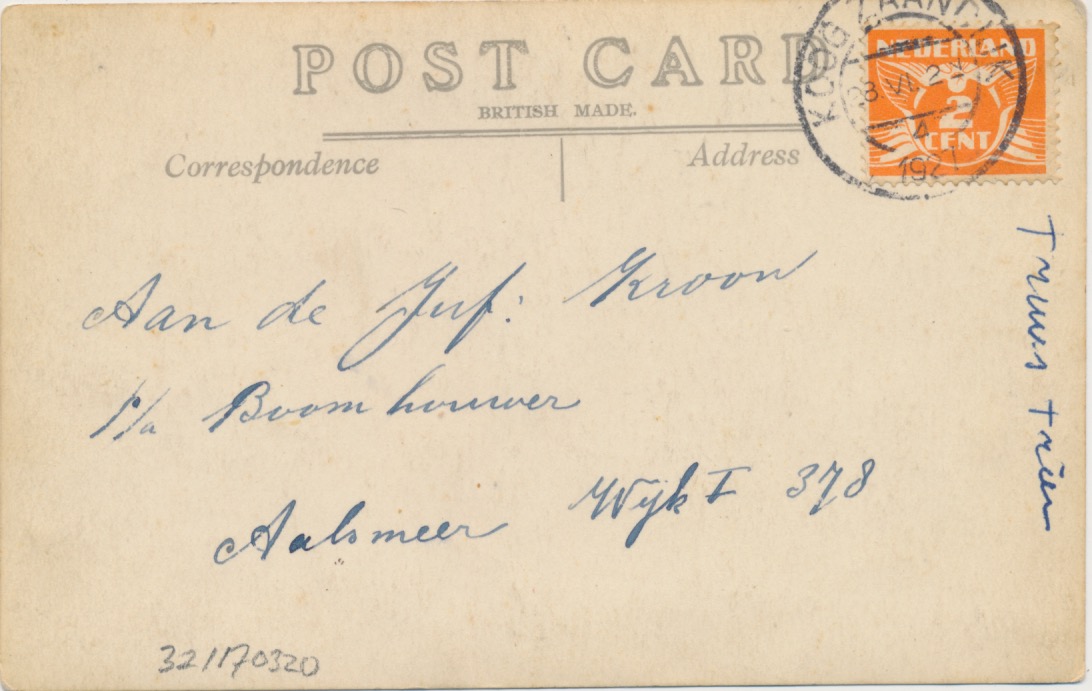 POST CARD
BRITISH MADE.
Correspondence
Address
KOOG ZAANDIJK
4
1927
NEDERLAND
2
CENT
Aan de Juf: Kroon
p/a Boomhouwer
Aalsmeer Wijk I 378
Truus Trien
32/170320